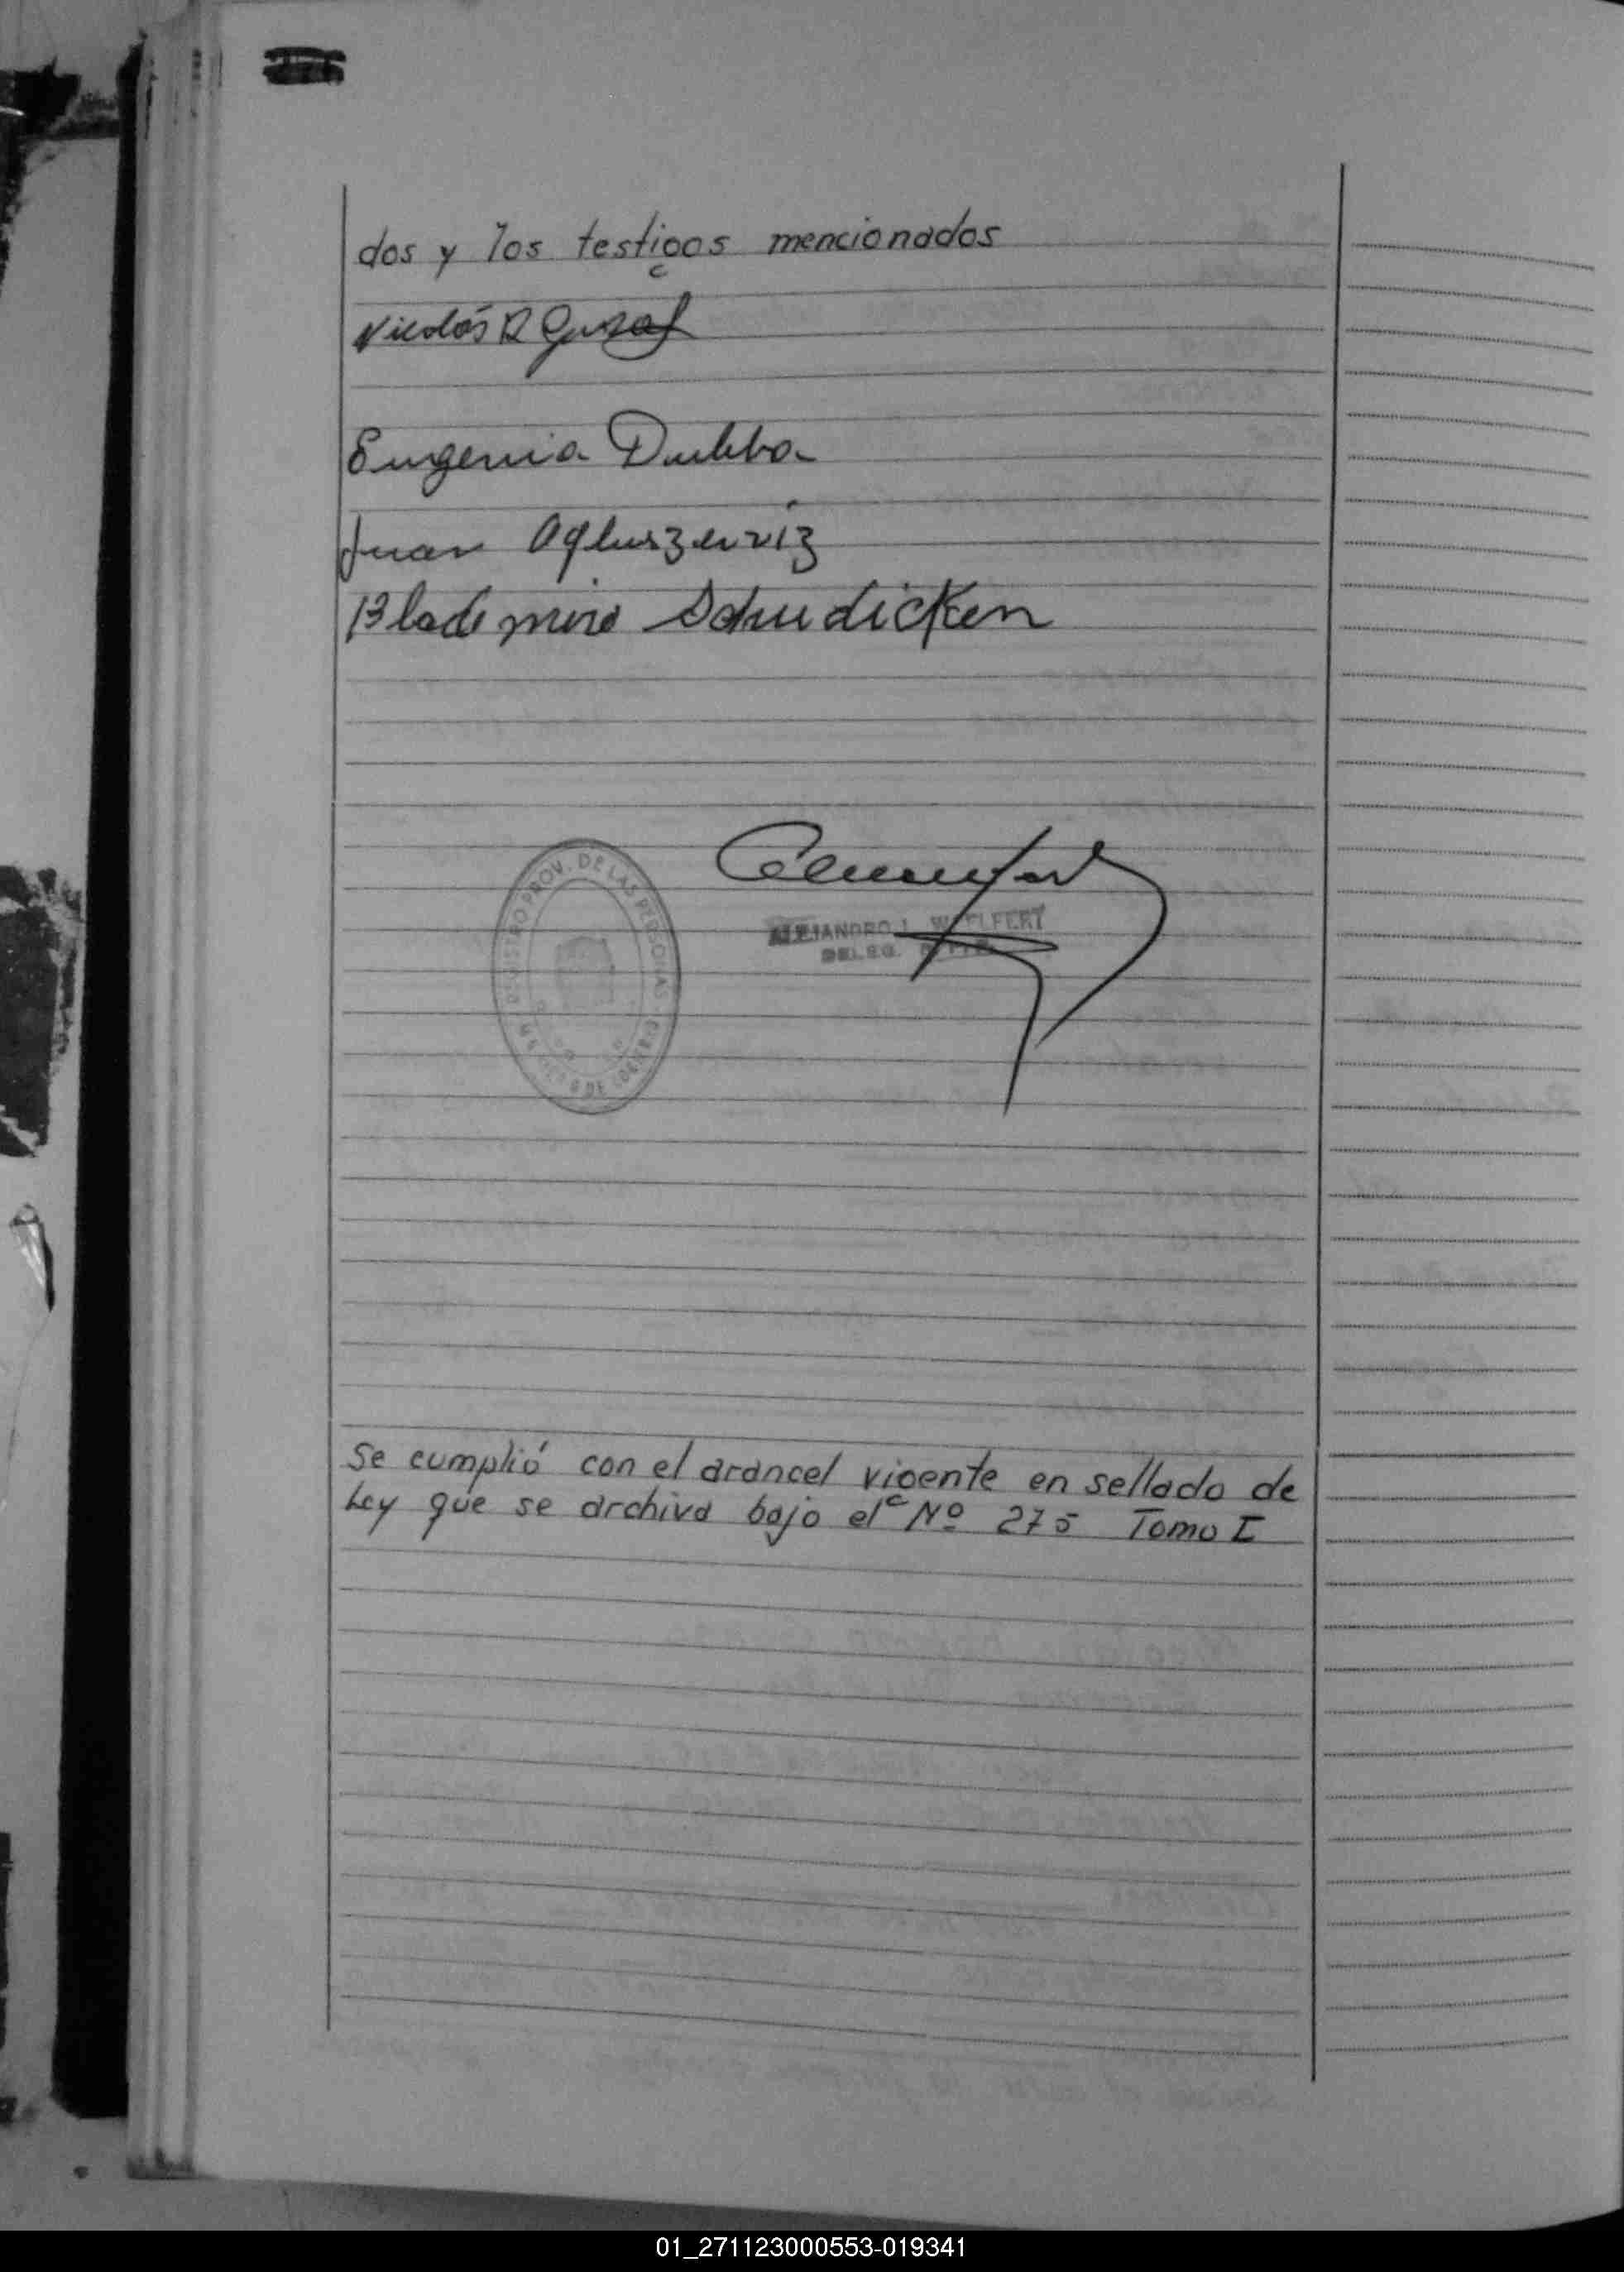 dos y los testigos mencionados
Nicolás R
Eugenia
Juan
Blademiro Schudicken
REGISTRO PROV. DE LAS PERSONAS
ALEJANDRO L. WOELFERT
DELEG.
Se cumplió con el arancel vigente en sellado de
Ley que se archiva bajo el Nº 275 Tomo I
01_271123000553-019341